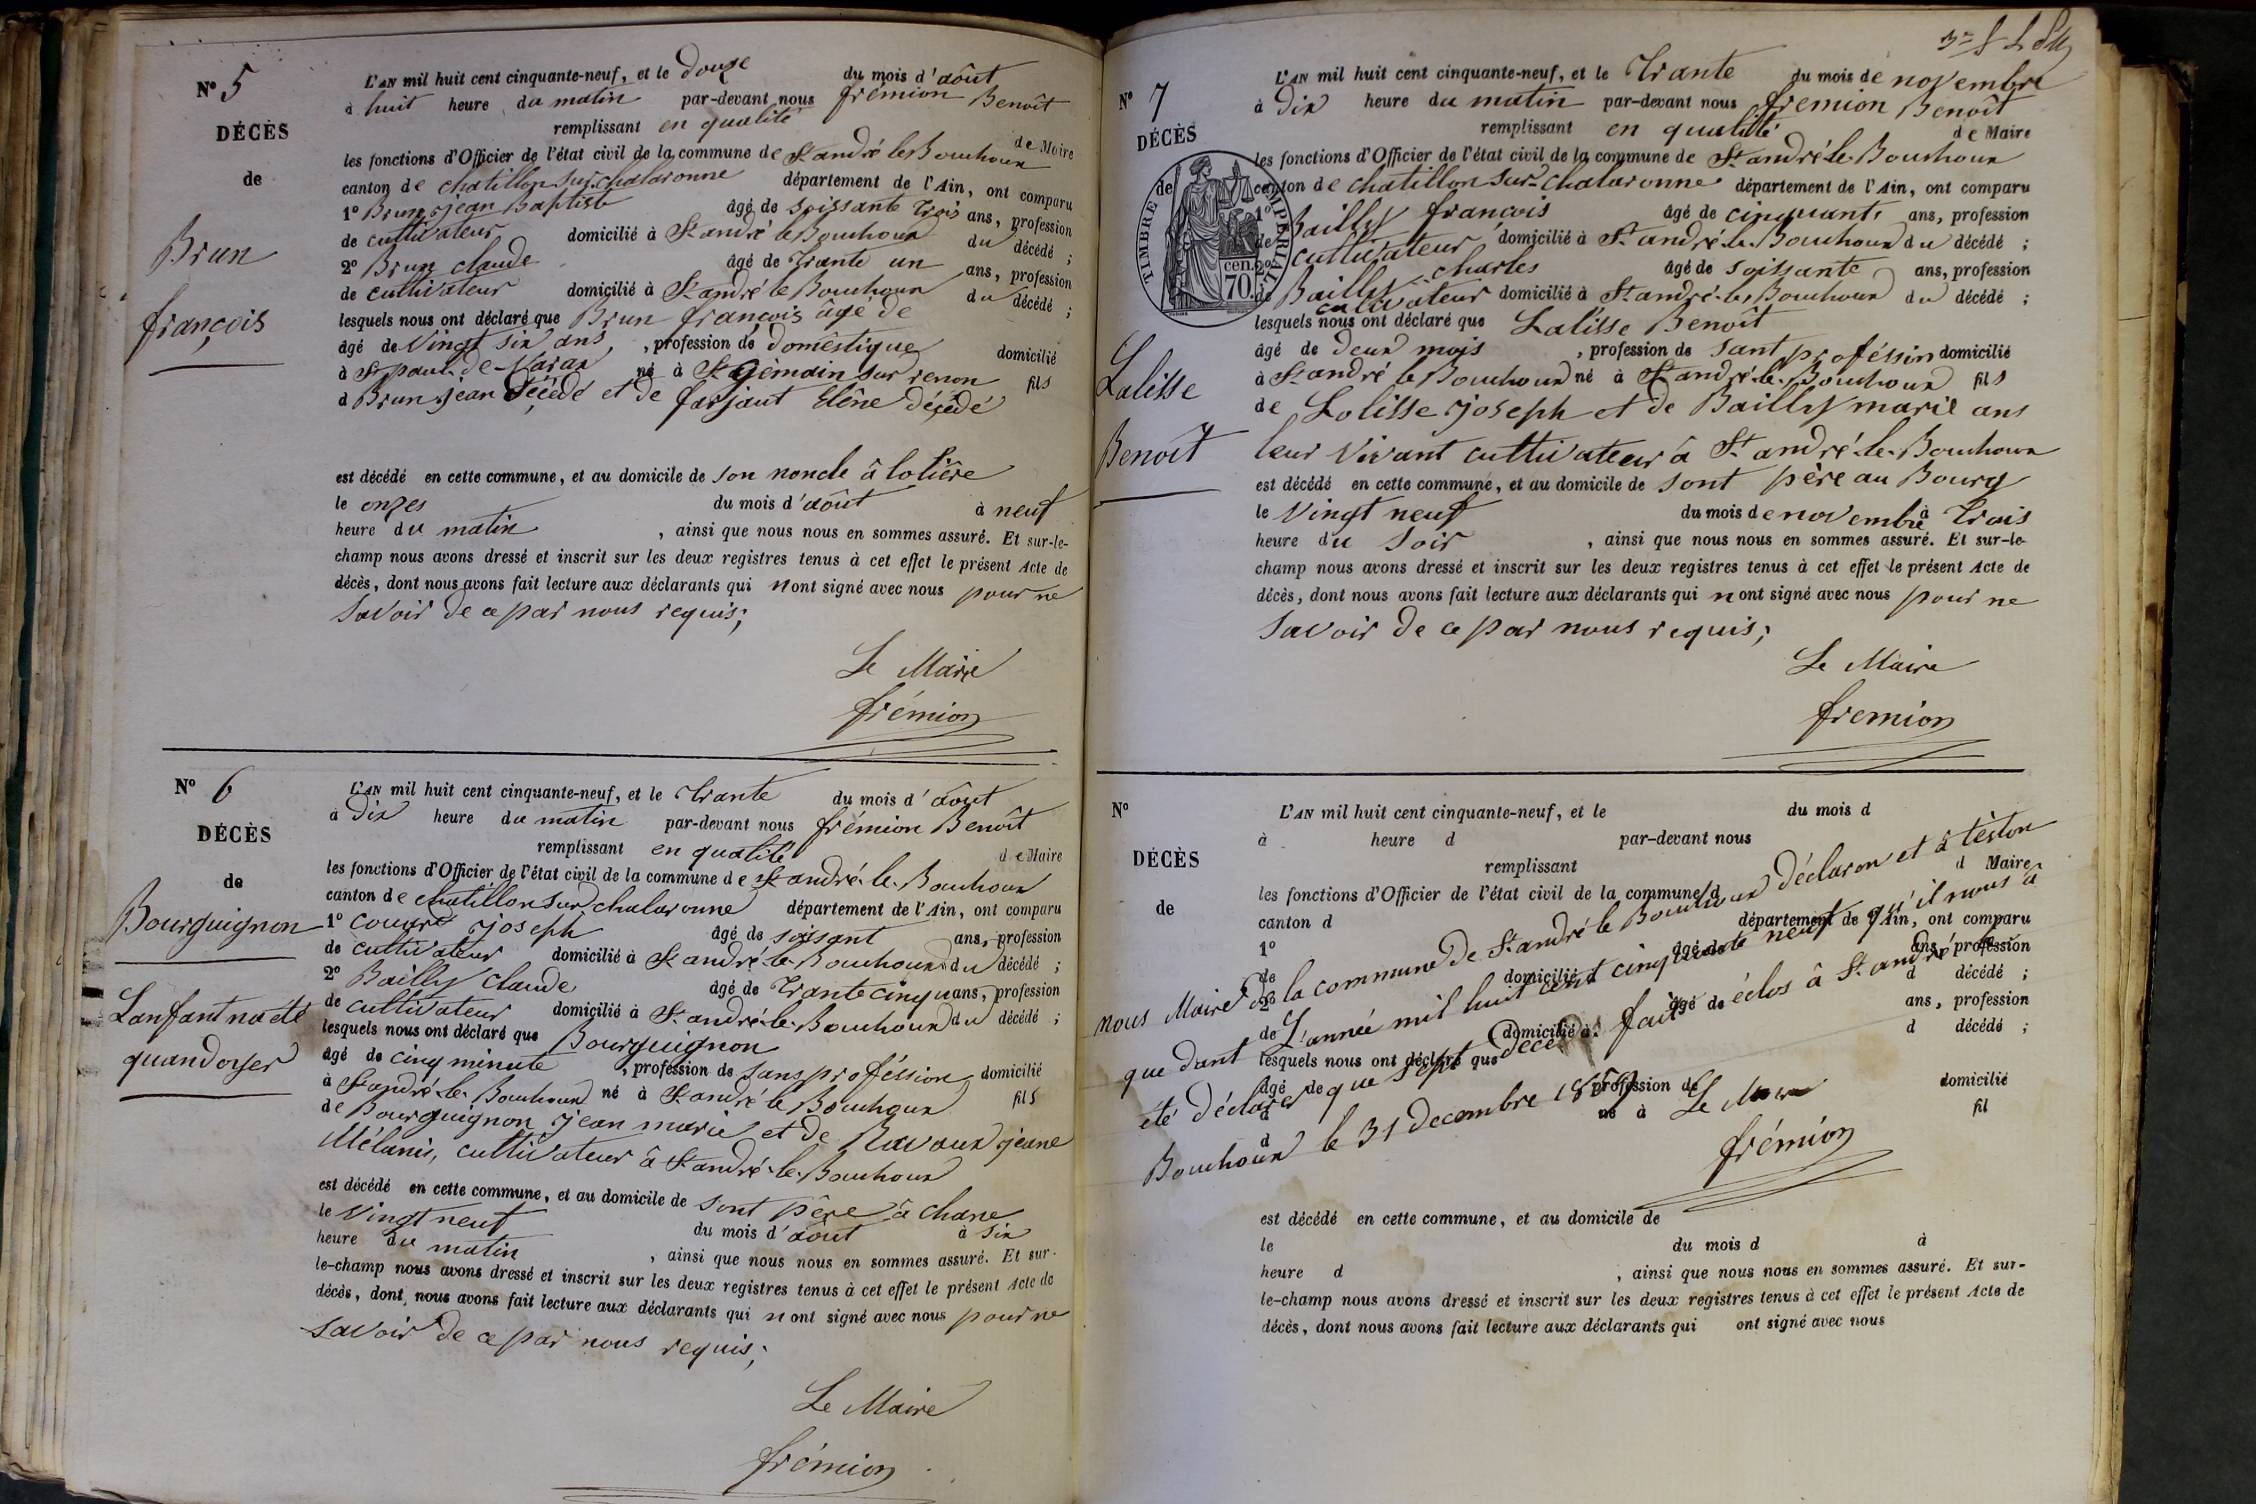 N° 5
DÉCÈS
de
Brun
françois
L'AN mil huit cent cinquante-neuf, et le douze du mois d'aôut
à huit heure du matin par-devant nous frémion Benoît
remplissant en qualité de Maire
les fonctions d'Officier de l'état civil de la commune de St andré le Bouchoux
canton de chatillon sur chalaronne département de l'Ain, ont comparu
1° Brun jean Baptiste âgé de soissante trois ans, profession
de cultivateur domicilié à St andré le Bouchoux du décédé ;
2° Brun claude âgé de trante un ans, profession
de cultivateur domicilié à St andré le Bouchoux du décédé ;
lesquels nous ont déclaré que Brun françois âgé de
âgé de Vingt six ans, , profession de domestique domicilié
à St paul de Varax né à St Gèmain sur renon fils
d Brun jean décédé et de farjaut Elêne décédé
est décédé en cette commune, et au domicile de son noncle â lotière
le onzes du mois d'aôut à neuf
heure du matin , ainsi que nous nous en sommes assuré. Et sur-le-
champ nous avons dressé et inscrit sur les deux registres tenus à cet effet le présent Acte de
décès, dont nous avons fait lecture aux déclarants qui n ont signé avec nous pour ne
savoir de ce par nous requis;
Le Maire
frémion
N° 6
DÉCÈS
de
Bourguignon
Lanfant na été
quandoyer
L'AN mil huit cent cinquante-neuf, et le trante du mois d'aôut
à dix heure du matin par-devant nous frémion Benoît
remplissant en qualité de Maire
les fonctions d'Officier de l'état civil de la commune de St andré-le-Bouchoux
canton de chatillon sur chalaronne département de l'Ain, ont comparu
1° joseph âgé de soisant ans, profession
de cultivateur domicilié à St andré-le-Bouchoux du décédé ;
2° Bailly claude âgé de trante cinq ans, profession
de cultivateur domicilié à St andré-le-Bouchoux du décédé ;
lesquels nous ont déclaré que Bourguignon
âgé de cinq minute , profession de sans proféssion domicilié
à St andré-le-Bouchoux né à St andré le Bouchoux fils
de Bourguignon jean marie et de Ravaux jeane
Mélanis, cultivateur â St andré-le-Bouchoux
est décédé en cette commune, et au domicile de sont père â chane
le Vingt neuf du mois d'aôut à six
heure du matin , ainsi que nous nous en sommes assuré. Et sur-
le-champ nous avons dressé et inscrit sur les deux registres tenus à cet effet le présent Acte de
décès, dont nous avons fait lecture aux déclarants qui n ont signé avec nous pour ne
savoir de ce par nous requis;
Le Maire
frémion
N° 7
DÉCÈS
de
TIMBRE IMPÉRIAL
cen.
70.
Lalisse
Benoît
L'AN mil huit cent cinquante-neuf, et le trante du mois de novembre
à dix heure du matin par-devant nous fremion Benoît
remplissant en qualité de Maire
les fonctions d'Officier de l'état civil de la commune de St andré-le-Bouchoux
canton de chatillon sur-chalaronne département de l'Ain, ont comparu
1° Bailly françois âgé de cinquante ans, profession
de cultivateur domicilié à St andré-le-Bouchoux du décédé ;
2° Bailly charles âgé de soissante ans, profession
de cultivateur domicilié à St andré-le-Bouchoux du décédé ;
lesquels nous ont déclaré que Lalisse Benoît
âgé de deux mois , profession de sant proféssion domicilié
à St andré le Bouchoux né à St andré-le-Bouchoux fils
de Lolisse joseph et de Bailly marie ans
leur Vivant cultivateur â St andré-le-Bouchoux
est décédé en cette commune, et au domicile de sont père au Bourg
le Vingt neuf du mois de novembre à trois
heure du soir , ainsi que nous nous en sommes assuré. Et sur-le-
champ nous avons dressé et inscrit sur les deux registres tenus à cet effet le présent Acte de
décès, dont nous avons fait lecture aux déclarants qui n ont signé avec nous pour ne
savoir de ce par nous requis;
Le Maire
fremion
N°
DÉCÈS
de
L'AN mil huit cent cinquante-neuf, et le du mois d
à heure d par-devant nous
remplissant d Maire
les fonctions d'Officier de l'état civil de la commune d
canton d département de l'Ain, ont comparu
1° âgé de ans, profession
de domicilié à d décédé ;
2° âgé de ans, profession
de domicilié à d décédé ;
lesquels nous ont déclaré que
âgé de , profession de domicilié
à né à fil
d
nous Maire de la commune de St andré le Bouchoux déclaron et â tèston
que dant L'année mil huit cent cinquante neuf qu'il nous a
été déclarer que sept décès fait éclos â St andré le
Bouchoux le 31 decembre 1859 Le Maire
frémion
est décédé en cette commune, et au domicile de
le du mois d à
heure d , ainsi que nous nous en sommes assuré. Et sur-
le-champ nous avons dressé et inscrit sur les deux registres tenus à cet effet le présent Acte de
décès, dont nous avons fait lecture aux déclarants qui ont signé avec nous